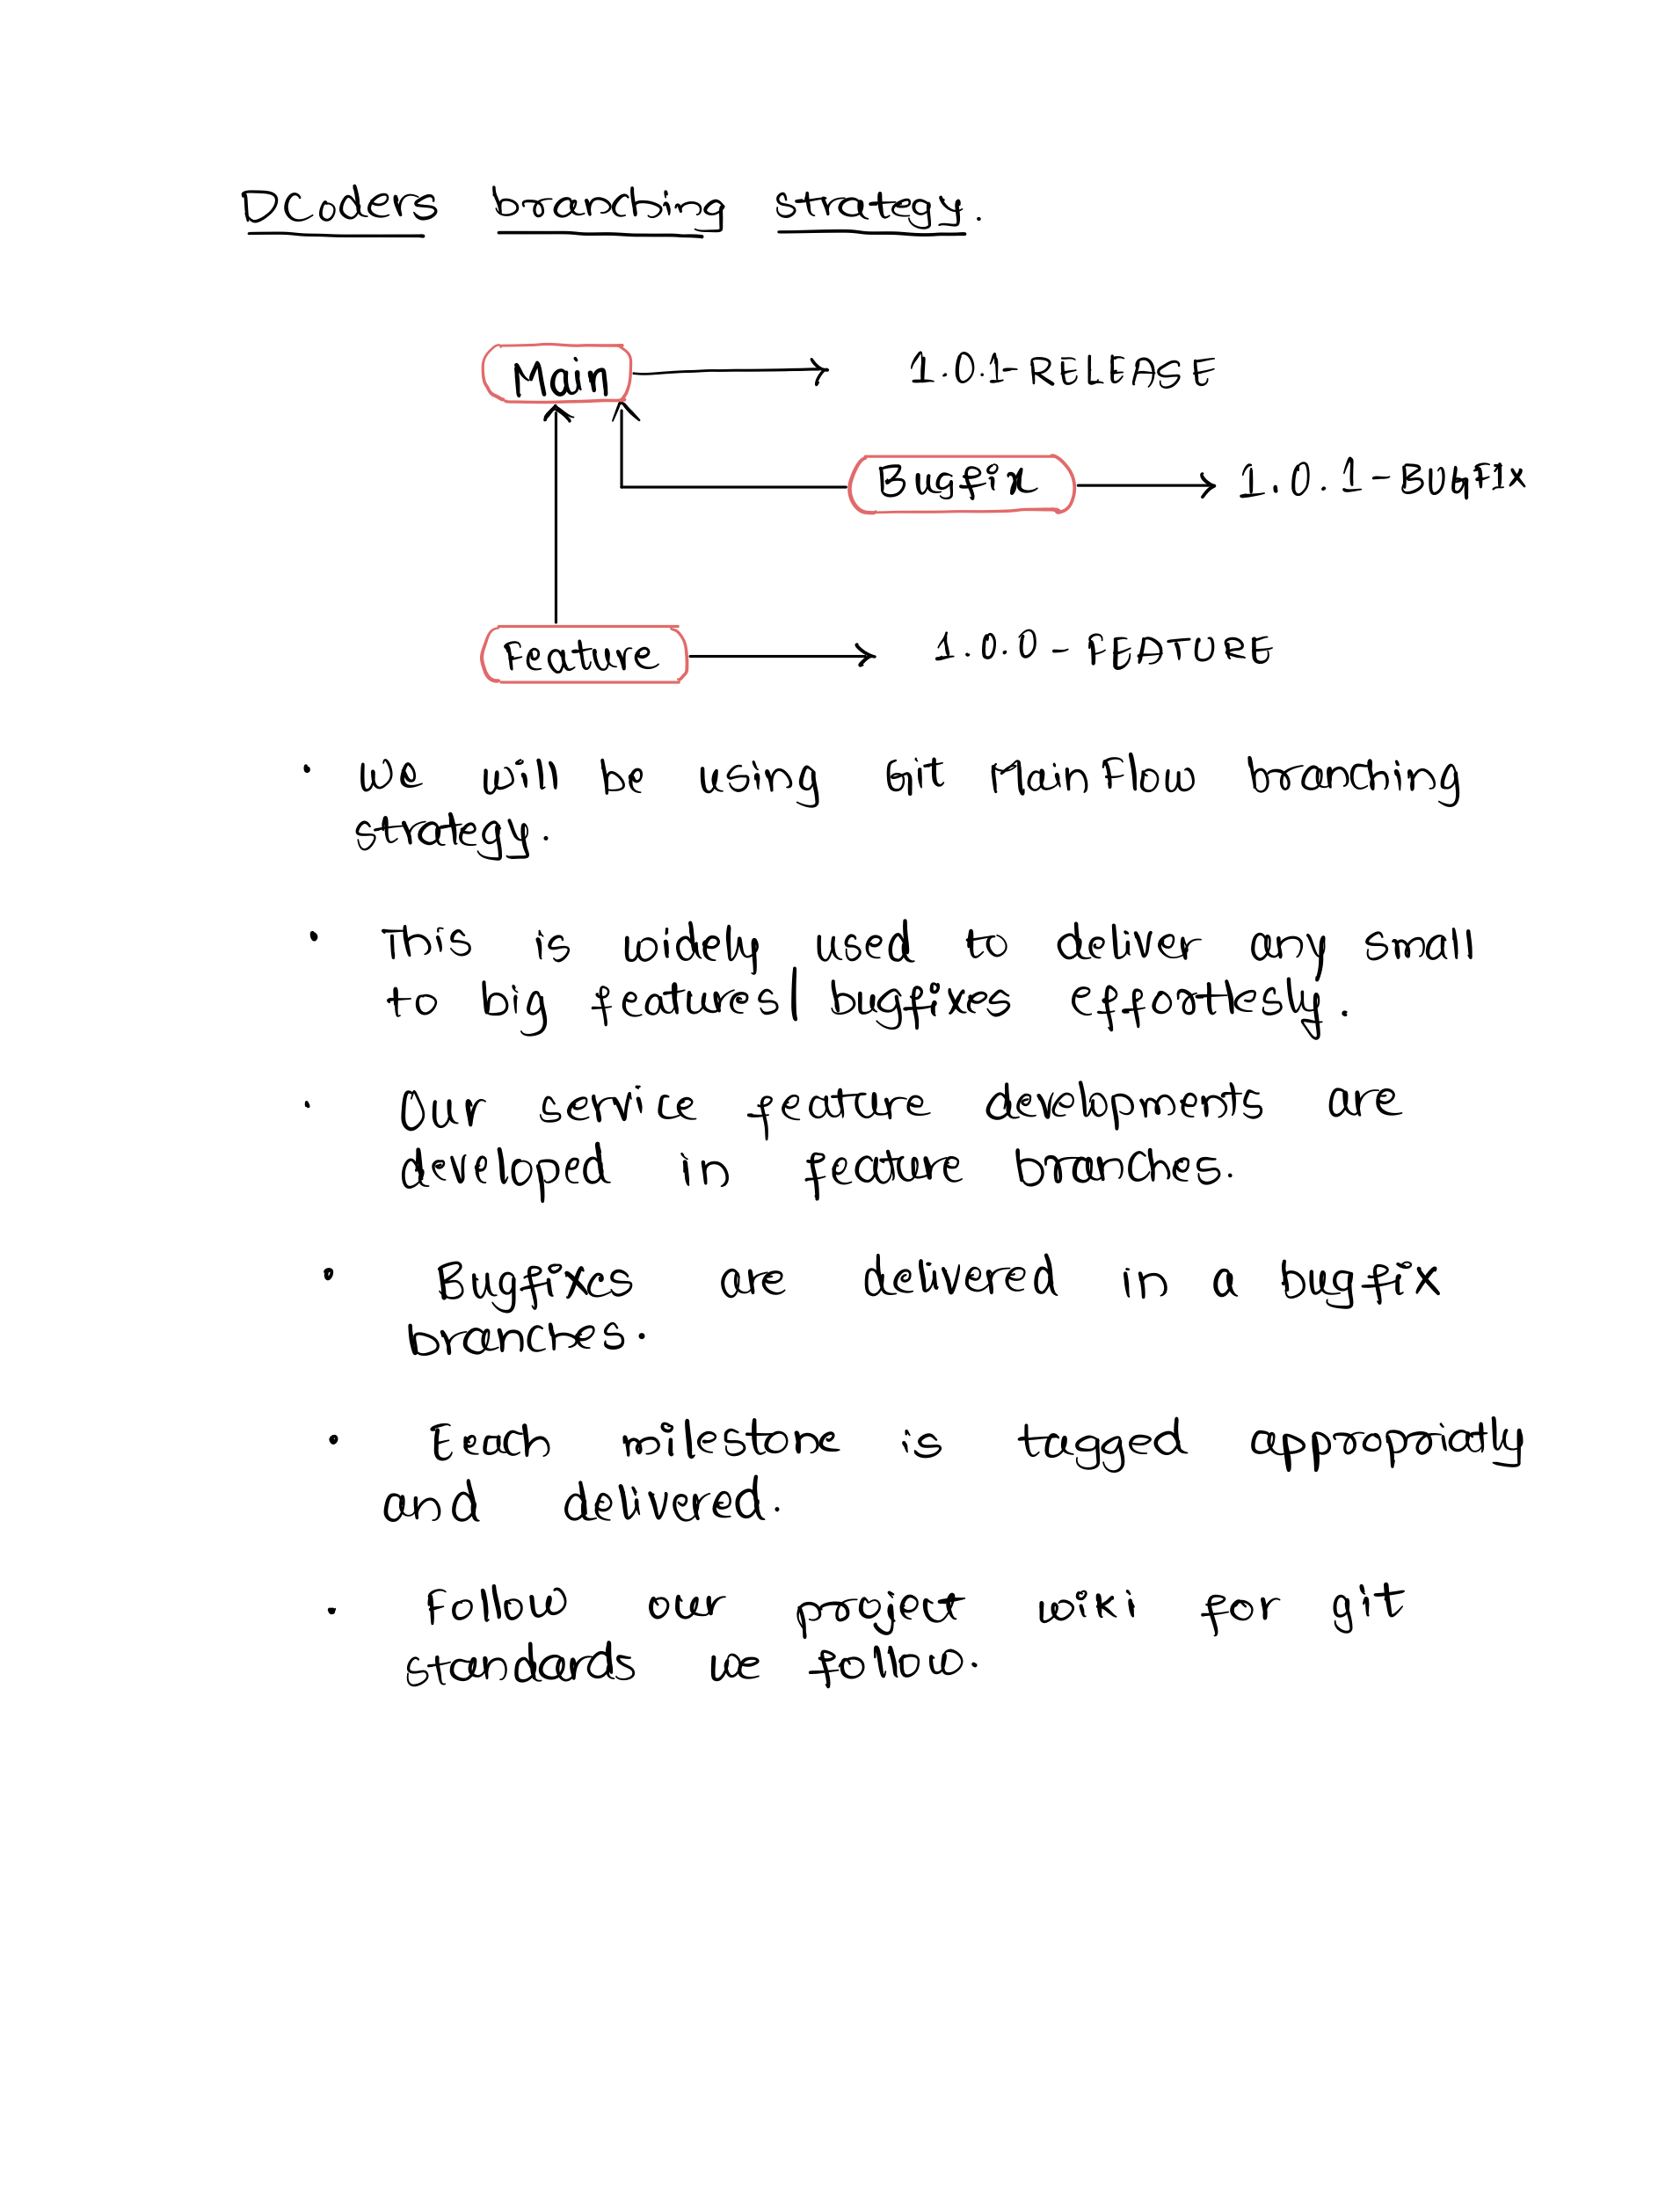 DCoders branching strategy.
Main 1.0.1-RELEASE
Bugfix 1.0.1-BUGFIX
Feature 1.0.0-FEATURE
• We will be using Git MainFlow branching
strategy.
• This is widely used to deliver any small
to big features/bugfixes effortlesly.
• Our service feature developments are
developed in feature branches.
• Bugfixes are delivered in a bugfix
branches.
• Eeach milestone is tagged appropriatly
and delivered.
• Follow our project wiki for git
standards we follow.